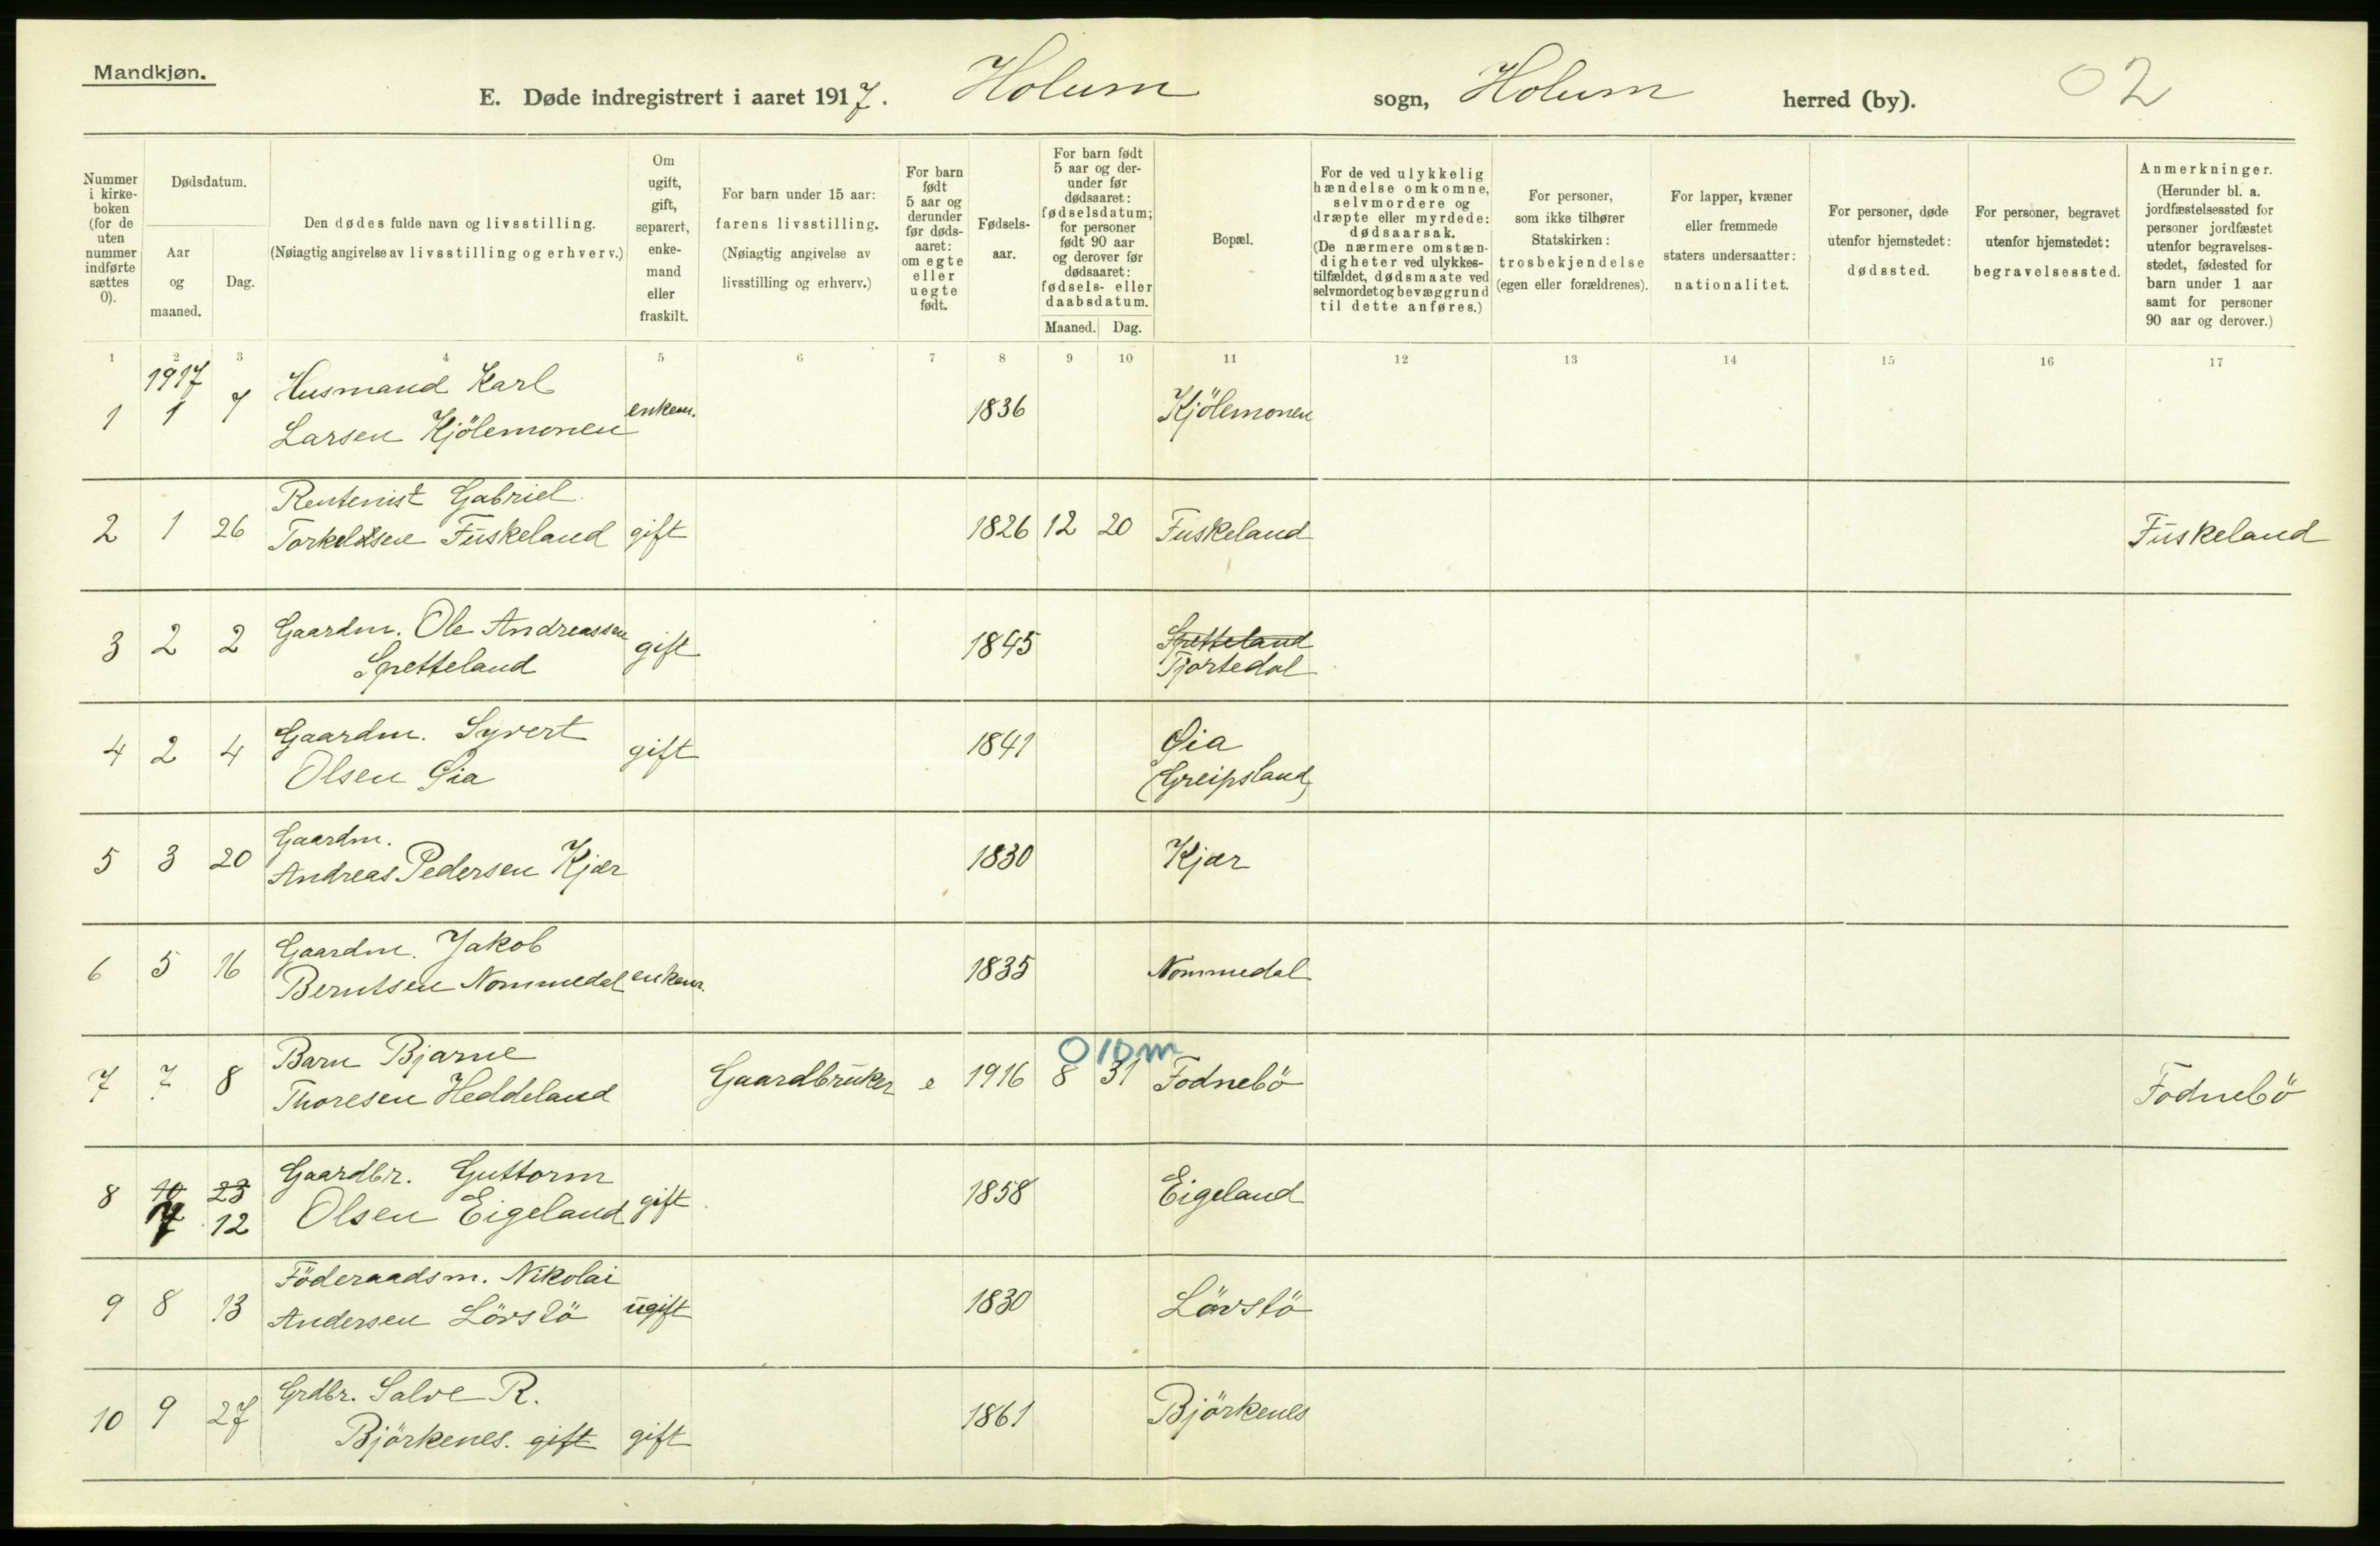 Mandkjøn.
E. Døde indregistrert i aaret 1917. Holum sogn, Holum herred (by). 02
Nummer i kirke-boken (for de uten nummer indførte sættes 0).
Dødsdatum.
Aar og maaned.
Dag.
Den dødes fulde navn og livsstilling.
(Nøiagtig angivelse av livsstilling og erhverv.)
Om ugift, gift, separert, enke-mand eller fraskilt.
For barn under 15 aar:
farens livsstilling.
(Nøiagtig angivelse av livsstilling og erhverv.)
For barn født 5 aar og derunder før døds-aaret: om egte eller uegte født.
Fødsels-aar.
For barn født 5 aar og der-under før dødsaaret: fødselsdatum; for personer født 90 aar og derover før dødsaaret: fødsels- eller daabsdatum.
Maaned. Dag.
Bopæl.
For de ved ulykkelig hændelse omkomne, selvmordere og dræpte eller myrdede: dødsaarsak.
(De nærmere omstæn-digheter ved ulykkes-tilfældet, dødsmaate ved selvmordet og bevæggrund til dette anføres.)
For personer, som ikke tilhører Statskirken: trosbekjendelse (egen eller forældrenes).
For lapper, kvæner eller fremmede staters undersaatter: nationalitet.
For personer, døde utenfor hjemstedet: dødssted.
For personer, begravet utenfor hjemstedet: begravelsessted.
Anmerkninger.
(Herunder bl. a. jordfæstelsessted for personer jordfæstet utenfor begravelses-stedet, fødested for barn under 1 aar samt for personer 90 aar og derover.)
1 2 3 4 5 6 7 8 9 10 11 12 13 14 15 16 17
1917
1 1 7 Husmand Karl
Larsen Kjölemonen enkem. 1836 Kjölemonen
2 1 26 Rentenist Gabriel
Torkeldsen Fuskeland gift 1826 12 20 Fuskeland Fuskeland
3 2 2 Gaardm. Ole Andreassen
Spetteland gift 1845 Spetteland
Tjortedal
4 2 4 Gaardm. Syvert
Olsen Øia gift 1841 Øia
(Greipsland)
5 3 20 Gaardm.
Andreas Pedersen Kjær 1830 Kjær
6 5 16 Gaardm. Jakob
Berntsen Nommedal enkem. 1835 Nommedal
0 10 m
7 7 8 Barn Bjarne
Thoresen Heddeland Gaardbruker e 1916 8 31 Fodnebö Fodnebö
8 10 23 Gaardbr. Guttorm
7 12 Olsen Eigeland gift 1858 Eigeland
9 8 13 Föderaadsm. Nikolai
Andersen Lövslö ugift 1830 Lövslö
10 9 27 Grdbr. Salve R.
Björkenes. gift gift 1861 Björkenes